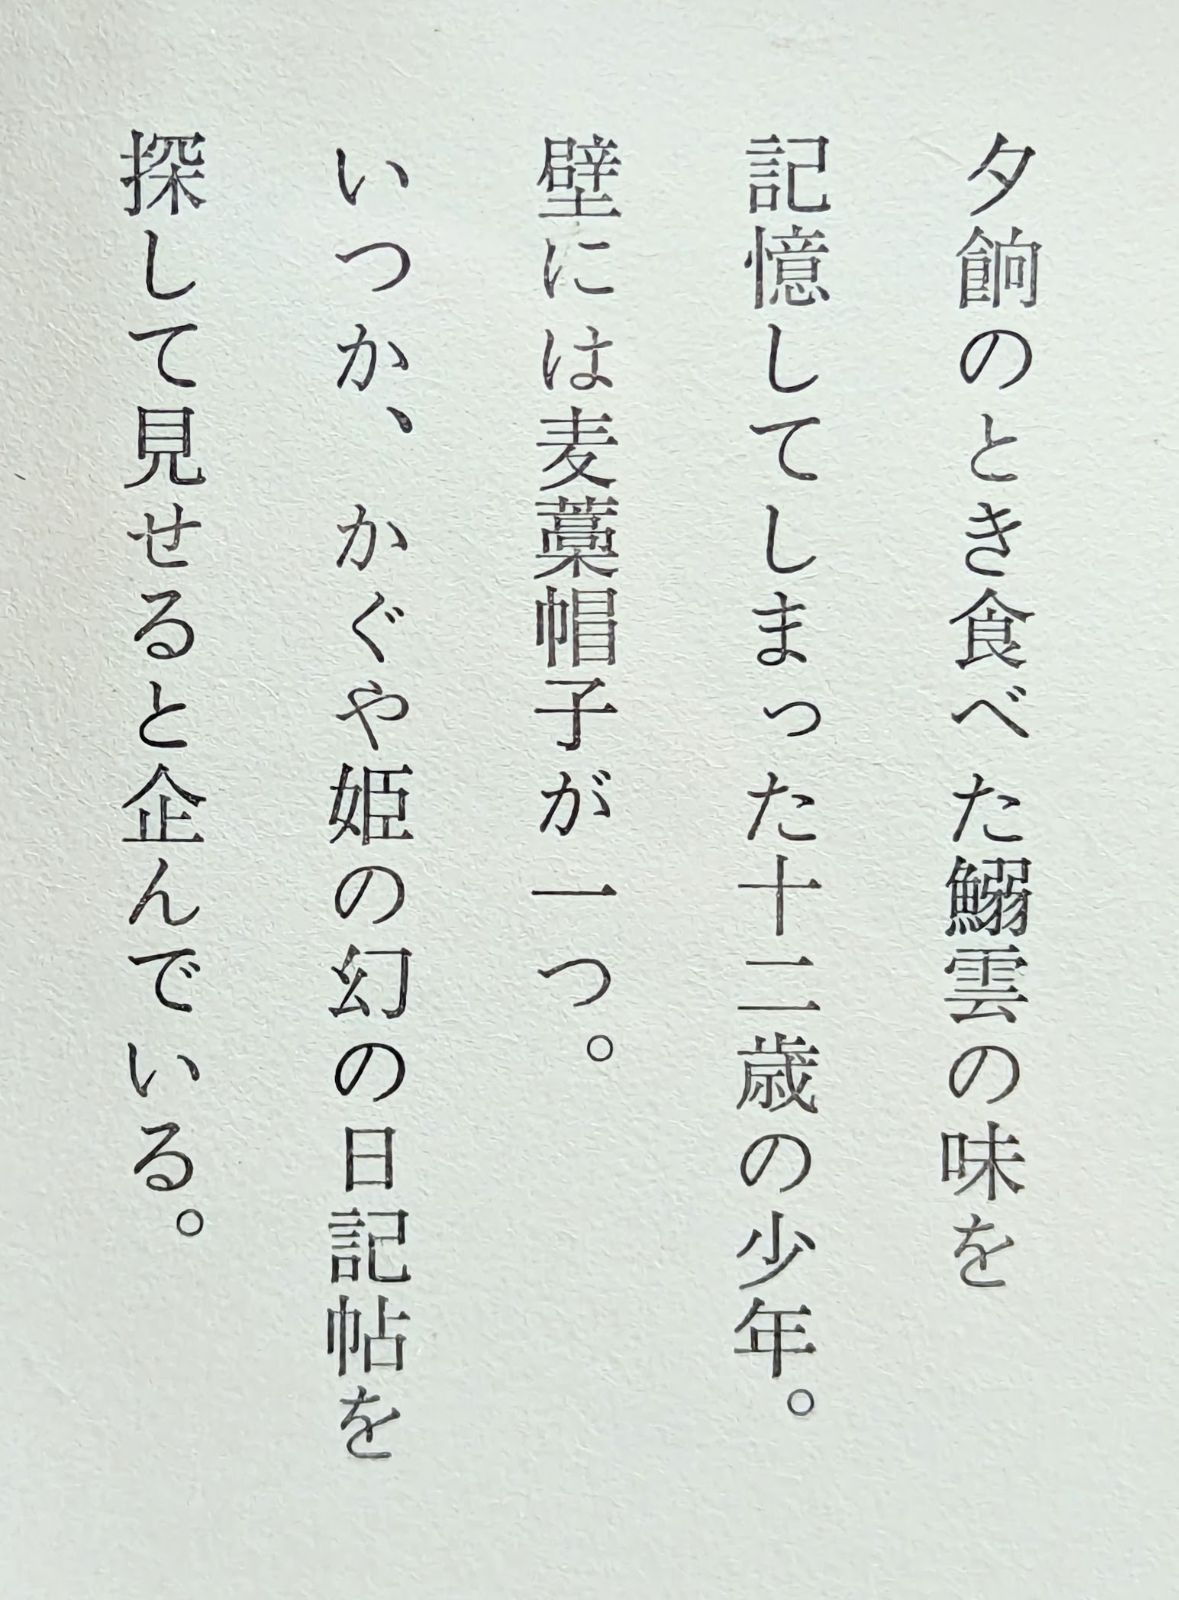 夕餉のとき食べた鰯雲の味を
記憶してしまった十二歳の少年。
壁には麦藁帽子が一つ。
いつか、かぐや姫の幻の日記帖を
探して見せると企んでいる。